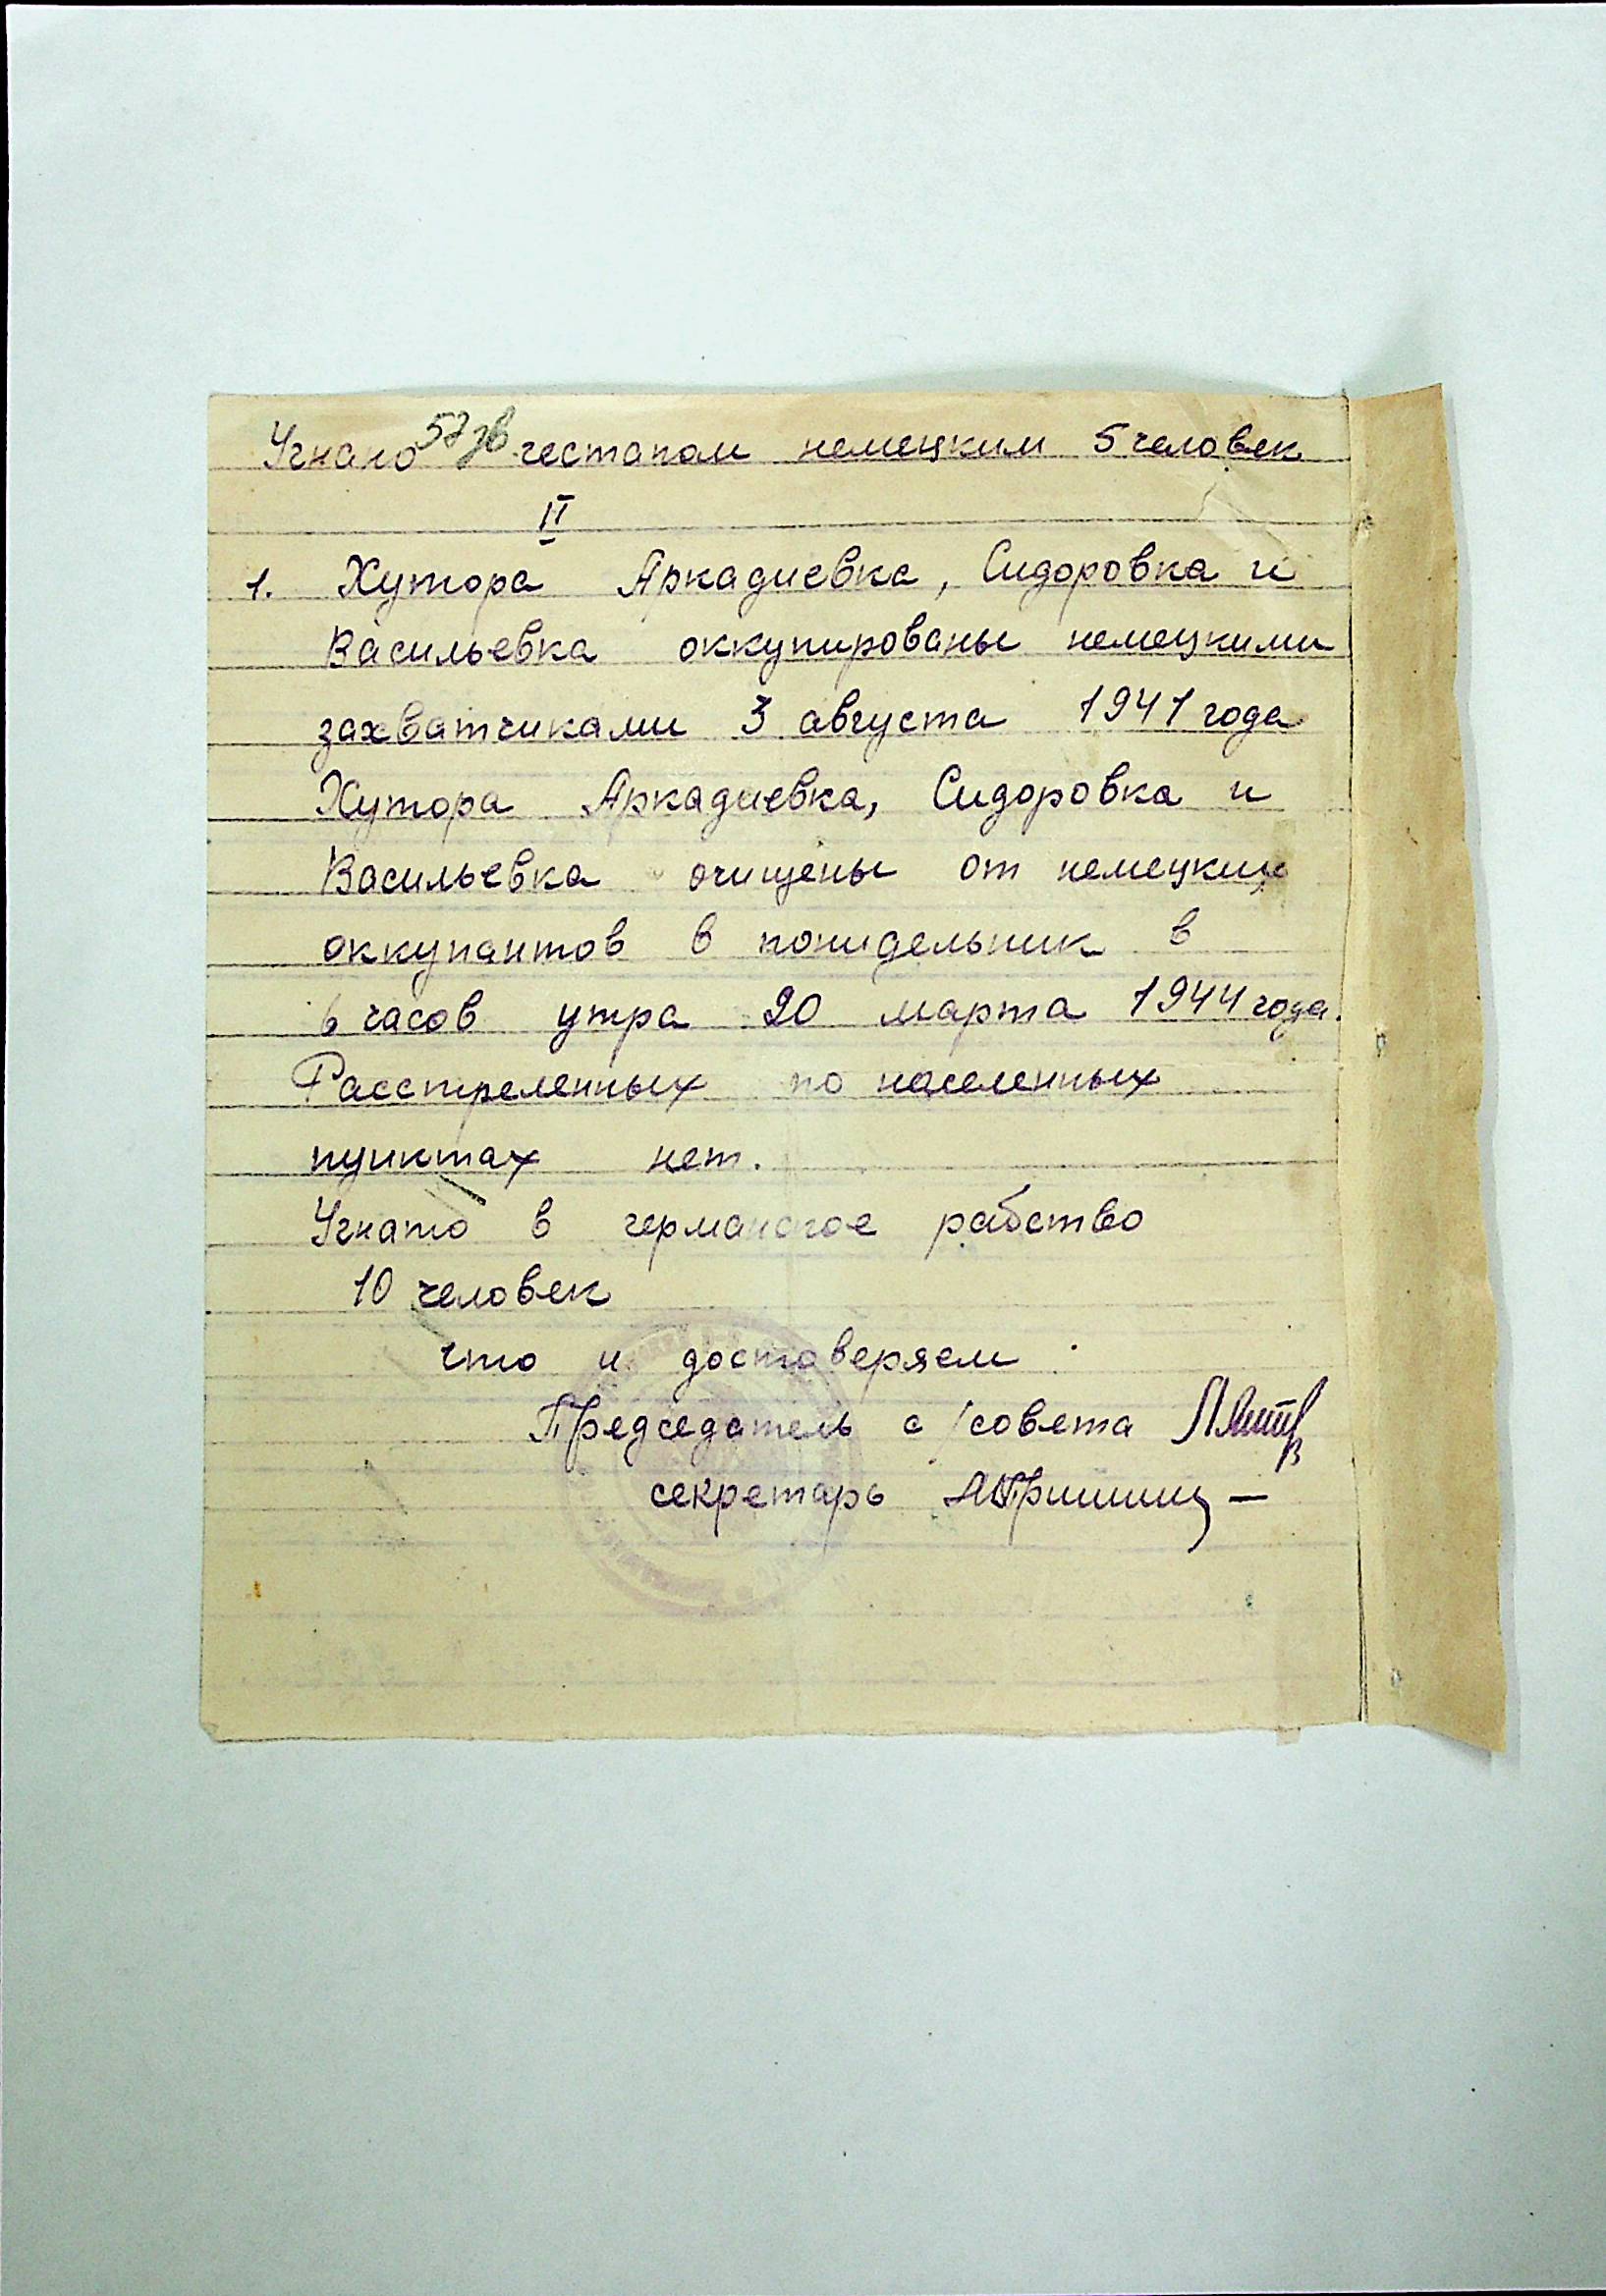 Угнано 57 зв гестапом немецким 5 человек
II
1. Хутора Аркадиевка, Сидоровка и
Васильевка оккупированы немецкими
захватчиками 3 августа 1941 года
Хутора Аркадиевка, Сидоровка и
Васильевка очищены от немецких
оккупантов в понидельник в
6 часов утра 20 марта 1944 года.
Расстреленных по населенных
пунктах нет.
Угнато в германское рабство
10 человек
что и достоверяем
Председатель с/совета
секретарь